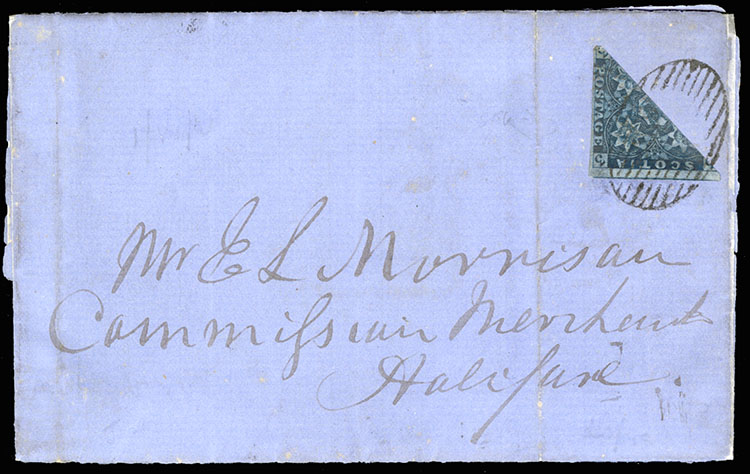 POSTAGE
SCOTIA
Mr E L Morrison
Commission Merchant
Halifax.